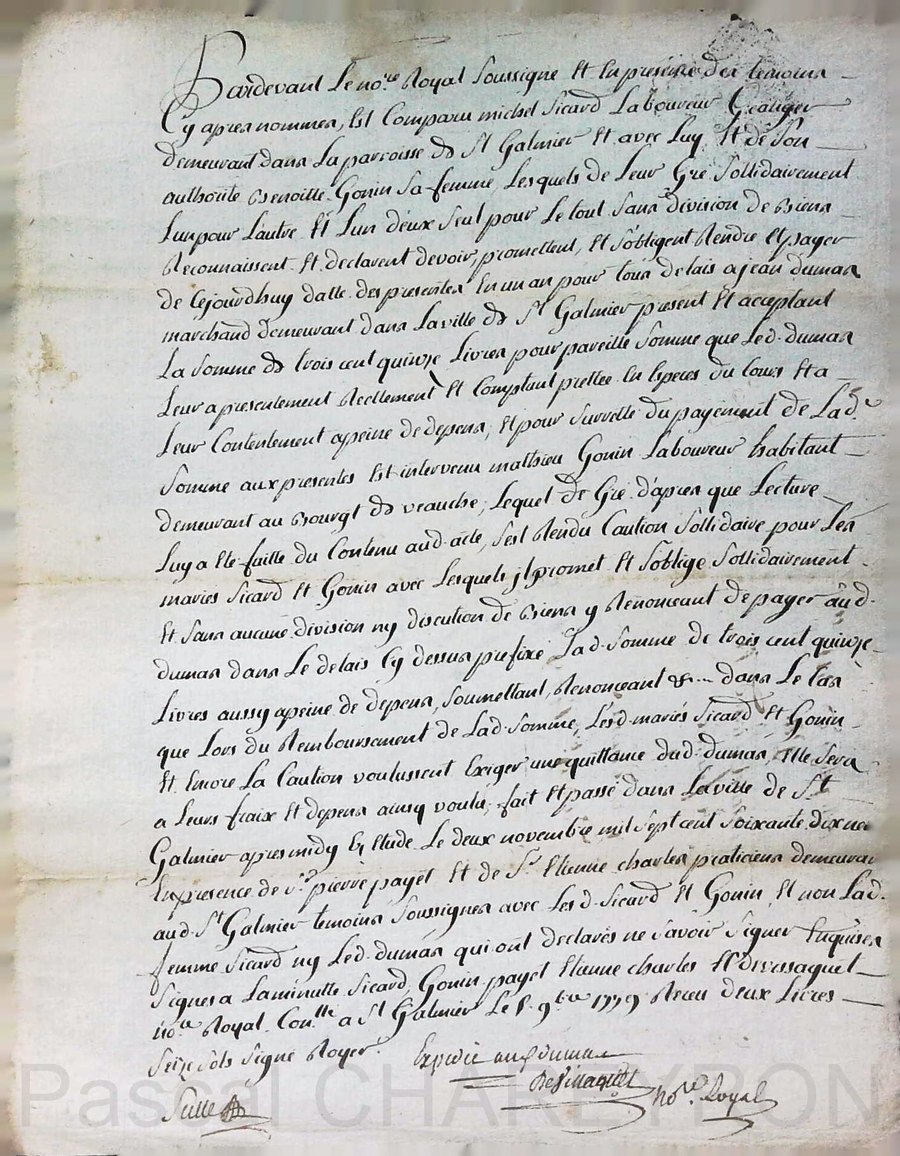 Pardevant Le no.re Royal Soussigné Et En presence des temoins
Cy apres nommes, Est Comparu michel Sicard Laboureur Granger
demeurant dans La parroisse de St Galmier Et avec Luy Et de Son
authorité Benoitte Gonin Sa femme Lesquels de Leur Gré Sollidairement
Lun pour Lautre Et Lun deux Seul pour Le tout Sans division de Biens
Reconnaissent Et declarent devoir, promettent, Et S'obligent Rendre Et payer
de Cejourdhuy datte des presentes En un an pour tous delais a jean dumas
marchand demeurant dans La ville de St Galmier present Et acceptant
La Somme de trois cent quinze Livres pour pareille Somme que Led. dumas
Leur a presentement Reellement Et Comptant prettée En Especes du Cours Et a
Leur Contentement a peine de depens, Et pour Surrette du payement de Lad.e
Somme aux presentes Est intervenu mathieu Gonin Laboureur habitant
demeurant au Bourgt de veauche, Lequel de Gré d'apres que Lecture
Luy a Eté faitte du Contenu aud. acte, S'est Rendu Caution Sollidaire pour Les
mariés Sicard Et Gonin avec Lesquels jl promet Et S'oblige Sollidairement
Et Sans aucune division ny discution de Biens y Renonceant de payer aud.
dumas dans Le delais Cy dessus prefixé Lad. Somme de trois cent quinze
Livres aussy a peine de depens, Soumettant, Renonceant &... dans Le Cas
que Lors du Remboursement de Lad. Somme, Lesd. mariés Sicard Et Gonin
Et Encore La Caution voulussent Exiger une quittance dud. dumas, Elle Sera
a Leurs fraix Et depens ainsy voulu, fait Et passé dans La ville de St
Galmier apres midy Et Etude Le deux novembre mil Sept cent Soixante dix neuf
En presence de Sr. pierre payet Et de Sr. Etienne charles praticiens demeurant
aud. St Galmier temoins Soussignes avec Lesd. Sicard Et Gonin, Et non Lad.
femme Sicard ny Led. dumas qui ont declarés ne Savoir Signer Enquis
Signes a La minutte Sicard, Gonin, payet Etienne charles Et
no.re Royal Con.lle a St Galmier Le 8. 9.bre 1779 Receu deux Livres
Seize Sols Signé Royer.
Expedié aud. dumas
no.re Royal
Pascal CHAREYRON